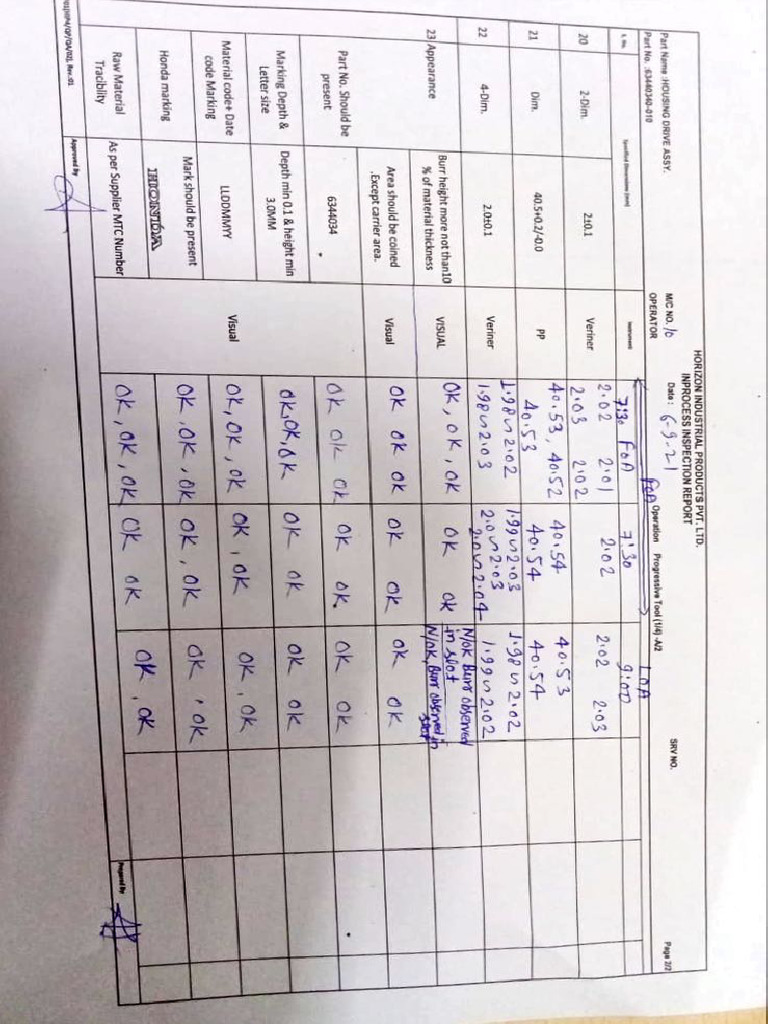 HORIZON INDUSTRIAL PRODUCTS PVT. LTD.
INPROCESS INSPECTION REPORT
Page 2/2
Part Name :HOUSING DRIVE ASSY. M/C NO. 10 Date : 6-9-21 Operation Progressive Tool (1/4) -A/2 SRV NO.
Part No. :63440340-010 OPERATOR FOA LOA
S. No. Specified Dimensions (mm) Instrument 7:30 FOA 7:30 9:00
20 2-Dim. 2±0.1 Veriner 2.02 2.01 2.02 2.02 2.03
2.03 2.02
21 Dim. 40.5+0.2/-0.0 PP 40.53, 40.52 40.54 40.53
40.53 40.54 40.54
22 4-Dim. 2.0±0.1 Veriner 1.98~2.02 1.99~2.03 1.98~2.02
1.98~2.03 2.0~2.03 1.99~2.02
2.0~2.04
23 Appearance Burr height more not than10 % of material thickness VISUAL OK, OK, OK OK OK N/OK, Burr observed in slot
N/OK, Burr observed in slot
Area should be coined .Except carrier area. Visual OK OK OK OK OK OK OK
Part No. Should be present 6344034 Visual OK OK OK OK OK. OK OK
Marking Depth & Letter size Depth min 0.1 & height min 3.0MM OK, OK, OK OK OK OK OK
Material code+ Date code Marking LLDDMMYY OK, OK, OK OK, OK OK, OK
Honda marking Mark should be present HONDA OK, OK, OK OK, OK OK, OK
Raw Material Tracibility As per Supplier MTC Number OK, OK, OK OK OK OK, OK
Approved by Prepared By
Rev.:01